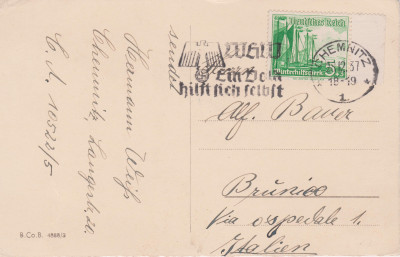 Deutsches Reich
Winterhilfswerk
CHEMNITZ
15.12.37
18-19
1
WHW
Ein Volk
hilft sich selbst
sendet
Hermann Weiß
Chemnitz, Langestr. 21.
C. A. 10522/5
Alf. Bauer
Brunico
Via ospedale 1.
Italien
B.Co.B.